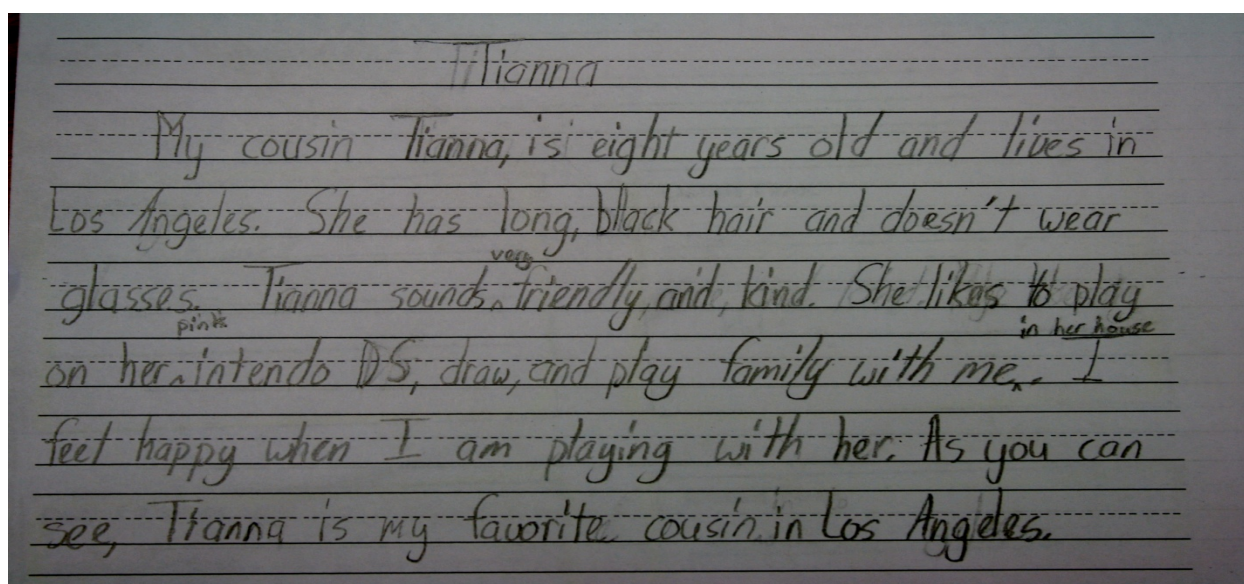 Tianna
My cousin Tianna, is eight years old and lives in
Los Angeles. She has long, black hair and doesn't wear
very
glasses. Tianna sounds friendly, and, kind. She likes to play
pink in her house
on her intendo DS, draw, and play family with me. I
feel happy when I am playing with her. As you can
see, Tianna is my favorite cousin in Los Angeles.